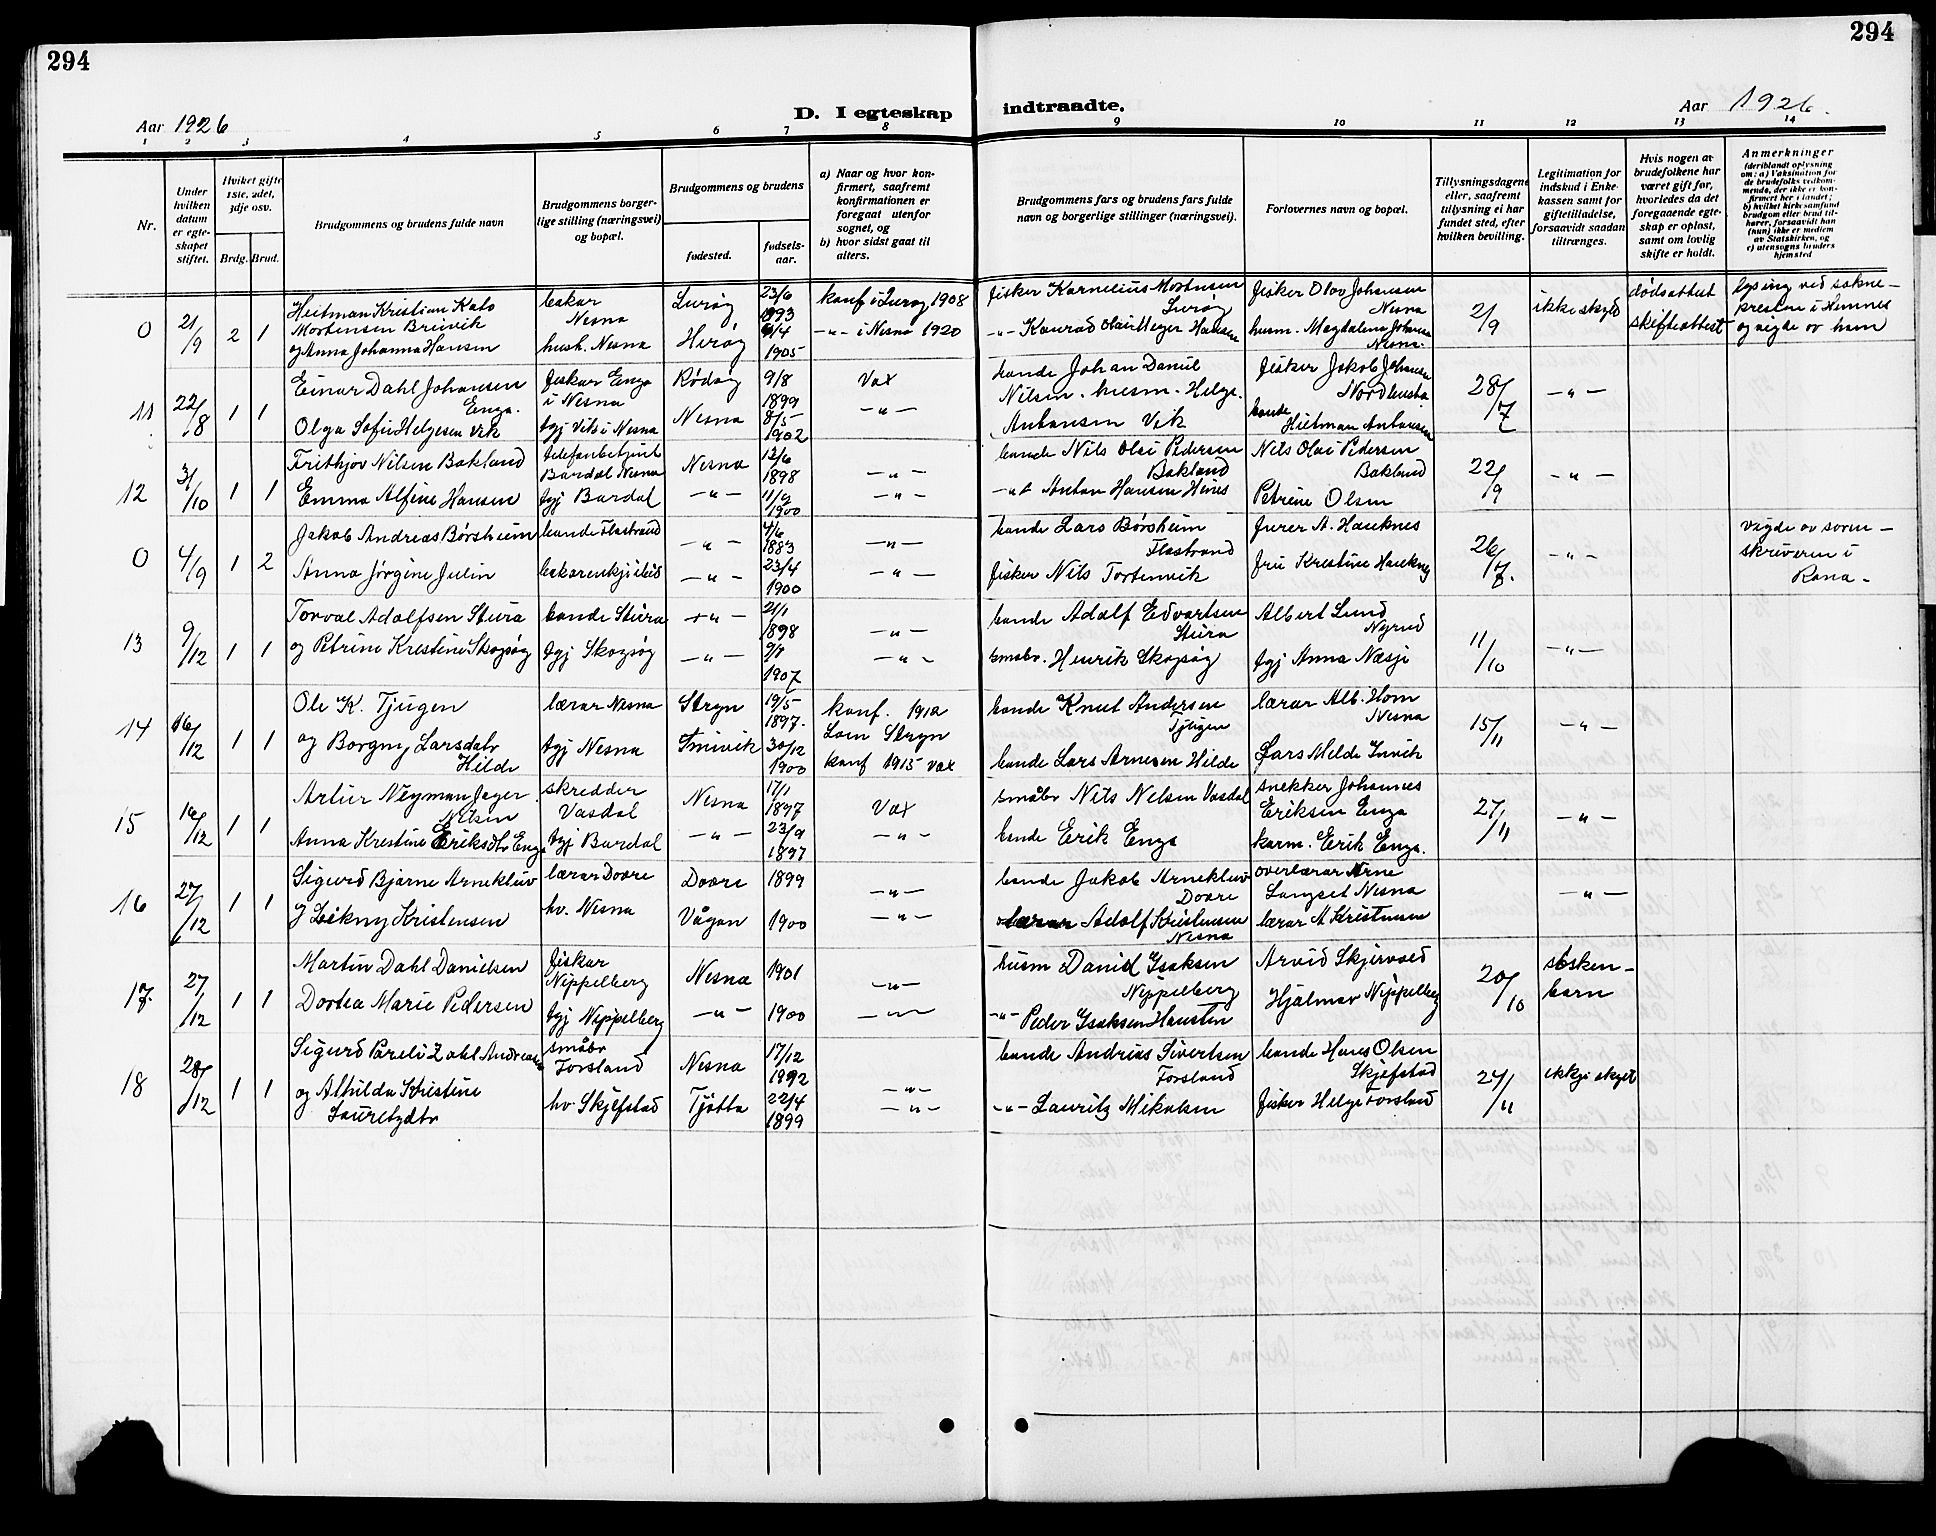 294
294
Aar 1926
D. I egteskap
indtraadte.
Aar 1926.
1 2 3 4 5 6 7 8 9 10 11 12 13 14
Nr.
Under hvilken datum er egteskapet stiftet.
Hviket gifte 1ste, 2det, 3dje osv.
Brdg. Brud.
Brudgommens og brudens fulde navn
Brudgommens borgerlige stilling (næringsvei) og bopæl.
Brudgommens og brudens
fødested.
fødselsaar.
a) Naar og hvor konfirmert, saafremt konfirmationen er foregaat utenfor sognet, og
b) hvor sidst gaat til alters.
Brudgommens fars og brudens fars fulde navn og borgerlige stillinger (næringsvei).
Forlovernes navn og bopæl.
Tillysningsdagene eller, saafremt tillysning ei har fundet sted, efter hvilken bevilling.
Legitimation for indskud i Enkekassen samt for giftetilladelse, forsaavidt saadan tiltrænges.
Hvis nogen av brudefolkene har været gift før, hvorledes da det foregaaende egteskap er opløst, samt om lovlig skifte er holdt.
Anmerkninger
(deriblandt oplysning om: a) Vaksination for de brudefolks vedkommende, der ikke er konfirmert her i landet; b) hvilket kirkesamfund brudgom eller brud tilhører, forsaavidt han (hun) ikke er medlem av Statskirken, og c) utensogns bruders hjemsted
0 21/9 2 1
Heitman Kristian Kato
Mortensen Breivik
og Anna Johanna Hansen
bakar
Nesna
hush. Nesna
Lurøy
Herøy
23/6
1893
1905
konf i Lurøy 1908
-"- i Nesna 1920
fisker Kornelius Mortensen
Lurøy
-"- Konrad Olai Meyer Hansen
fisker Olov Johansen
Nesna
husm. Magdalena Johansen
Nesna.
2/9
ikke skyld
dødsattest
skifteattest
lysing ved sokne-
presten i Hemnes
og vigde av him
11 22/8 1 1
Einar Dahl Johansen
Enga.
Olga Sofie Helgesen Vik
fiskar Enga
i Nesna
tgj Vik i Nesna
Rødøy
Nesna
9/8
1899
8/5
1902
Vax
-"-
bonde Johan Danul
Nilsen. husm. Helge.
Antonsen Vik
fisker Jakob Johansen
bonde
Hietman Antonsen
28/7
-"-
12 3/10 1 1
Frithjov Nilsen Bakland
Emma Alfine Hansen
telefonbetjent
Bardal Nesna
tgj Bardal
Nesna
-"-
12/6
1898
11/9
1900
-"-
-"-
bonde Nils Olai Pedersen
Bakland
-"- Anton Hansen
Nils Olai Pedersen
Bakland
Petrine Olsen
22/9
-"-
0 4/9 1 2
Jakob Andreas Børsheim
Anna Jørgine Julin
bonde Flostrand
-"-
-"-
4/6
1883
23/4
1900
-"-
-"-
bonde Lars Børsheim
Flostrand
fisker Nils Tortenvik
26/7.
-"-
vigde av soren-
skriveren i
Rana-
13 9/12 1 1
Torval Adolfsen Stura
og Petrine Krestine Skogsøy
bonde Stura
tgj Skogsøy
-"-
-"-
21/1
1898
9/8
1907
-"-
-"-
bonde Adolf Edvartsen
Stura
småbr. Henrik Skogsøy
Albert Lund
tgj Anna Næsje
11/10
-"-
14 16/12 1 1
Ole K. Tjugen
og Borgny Larsdatr
Hilde
lærar Nesna
tgj Nesna
Stryn
19/5
1897.
30/12
1900
konf. 1912
Loen Stryn
konf 1915 vax
bonde Knut Andersen
Tjugen
bonde Lars Arnesen Hilde
lærar Alb. Hom
Nesna
Lars Melde Invik
15/11
-"-
15 16/12 1 1
Artur Neyman Jeger
Nilsen
Anna Krestine Eriksdtr Enga
skredder
Vasdal
tgj Bardal
Nesna
-"-
17/1
1897
23/9
1897
Vax
-"-
småbr Nils Nelsen Vasdal
bonde Erik Enga
snekker Johannes
Eriksen Enga
karm. Erik Enga.
27/11
-"-
16 27/12 1 1
Sigurd Bjarne Arnekleiv
J Løkny Kristensen
lærar Dovre
hv. Nesna
Dovre
Vågan
1899
1900
-"-
-"-
bonde Jakob Arnekleiv
Dovre
lærar Adolf Kristensen
Nesna
overlærar Arne
Langset Nesna
lærar A Kristensen
-"-
17. 27/12 1 1
Martin Dahl Danielsen
Dortea Marie Pedersen
fiskar
Nippelberg
tgj Nippelberg
Nesna
-"-
1901
1900
-"-
-"-
husm Daniel Isaksen
Nippelberg
-"- Peder Isaksen Hausten
Arvid Skjervold
Hjalmar Nippelberg
20/10
søsken-
barn
18 28/12 1 1
Sigurd Pareli Zahl Andreasen
og Alhilda Kristine
Lauritzdtr
småbr
Forsland
hv. Skjefstad
Nesna
Tjøtta
17/12
22/4
1899
-"-
-"-
bonde Andrias Sivertsen
Forsland
-"- Lauritz Mikalsen
bonde Hans Olsen
Skjefstad
fisker Helge Forsland
24/11
ikkje skyld